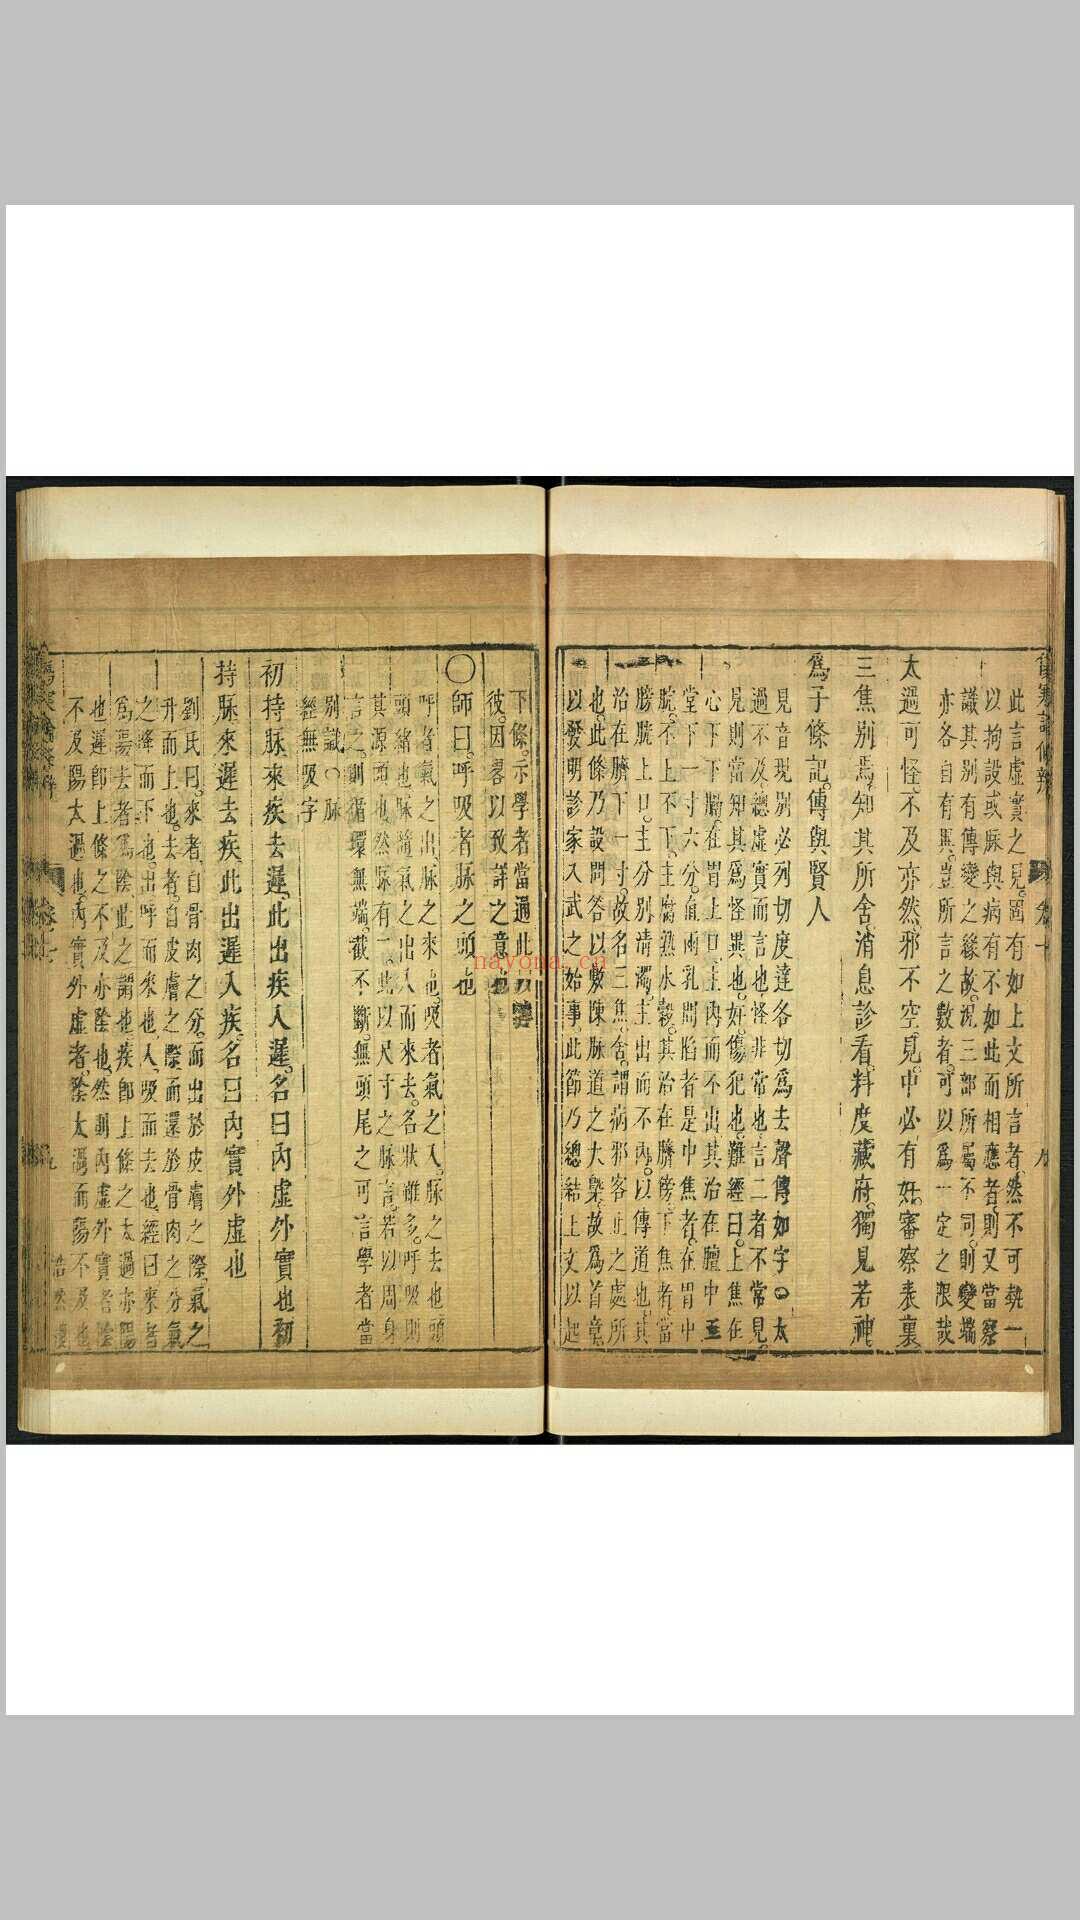 此言虛實之見固有如上文所言者然不可執一
以拘設或脉與病有不如此而相應者則又當察
識其別有傳變之緣故況三部所屬不同則變端
亦各自有異豈所言之數者可以為一定之限哉
太過可怪不及亦然邪不空見中必有奸審察表裏
三焦別焉知其所舍消息診看料度藏府獨見若神
為子條記傳與賢人
見音現別必列切度達各切為去聲傳如字○太
過不及總虛實而言也怪非常也言二者不常見
見則當知其為怪異也奸傷犯也難經曰上焦在
心下下膈在胃上口主內而不出其治在膻中玉
堂下一寸六分直兩乳間陷者是中焦者在胃中
脘不上不下主腐熟水穀其治在臍傍下焦者當
膀胱上口主分別清濁主出而不內以傳道也其
治在臍下一寸故名三焦舍謂病邪客止之處所
也此條乃設問答以敷陳脉道之大槩故為首章
以發明診家入式之始事此節乃總結上文以起
下條示學者當過此以
彼因畧以致詳之意也
○師曰呼吸者脉之頭也
呼者氣之出脉之來也吸者氣之入脉之去也頭
頭緒也脉隨氣之出入而來去名狀雖多呼吸則
其源頭也然脉有一此以尺寸之脉言若以周身
言之則循環無端截不斷無頭尾之可言學者當
別識○脉
經無吸字
初持脉來疾去遲此出疾入遲名曰內虛外實也初
持脉來遲去疾此出遲入疾名曰內實外虛也
劉氏曰來者自骨肉之分而出於皮膚之際氣之
升而上也去者自皮膚之際而還於骨肉之分氣
之降而下也出呼而來也入吸而去也經曰來者
為陽去者為陰此之謂也疾即上條之太過亦陽
也遲即上條之不及亦陰也然則內虛外實者陰
不及陽太過也內實外虛者陰太過而陽不及也
浩然樓
nayona.cn